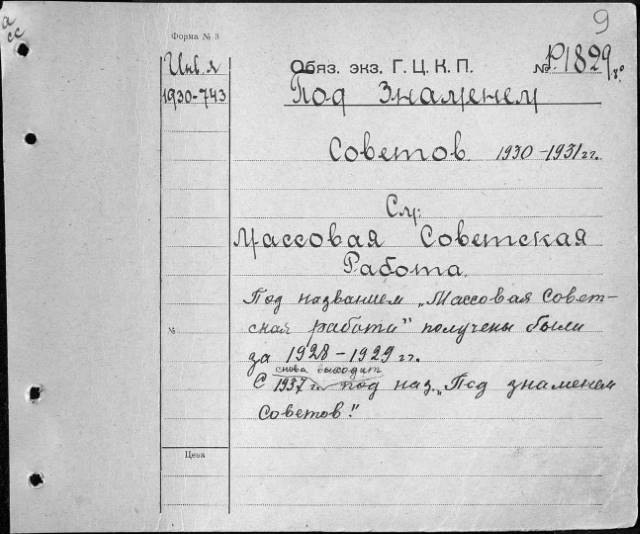 а
сс
9
Форма № 3
Инв. №
1930-743
Обяз. экз. Г. Ц. К. П.
№ Р1829
Под Знаменем
Советов 1930-1931 гг.
См:
Массовая Советская
Работа.
Под названием „Массовая Совет-
ская работа" получены были
№
за 1928-1929 гг.
снова выходит
С 1937 г. под наз. „Под знаменем
Советов".
Цена